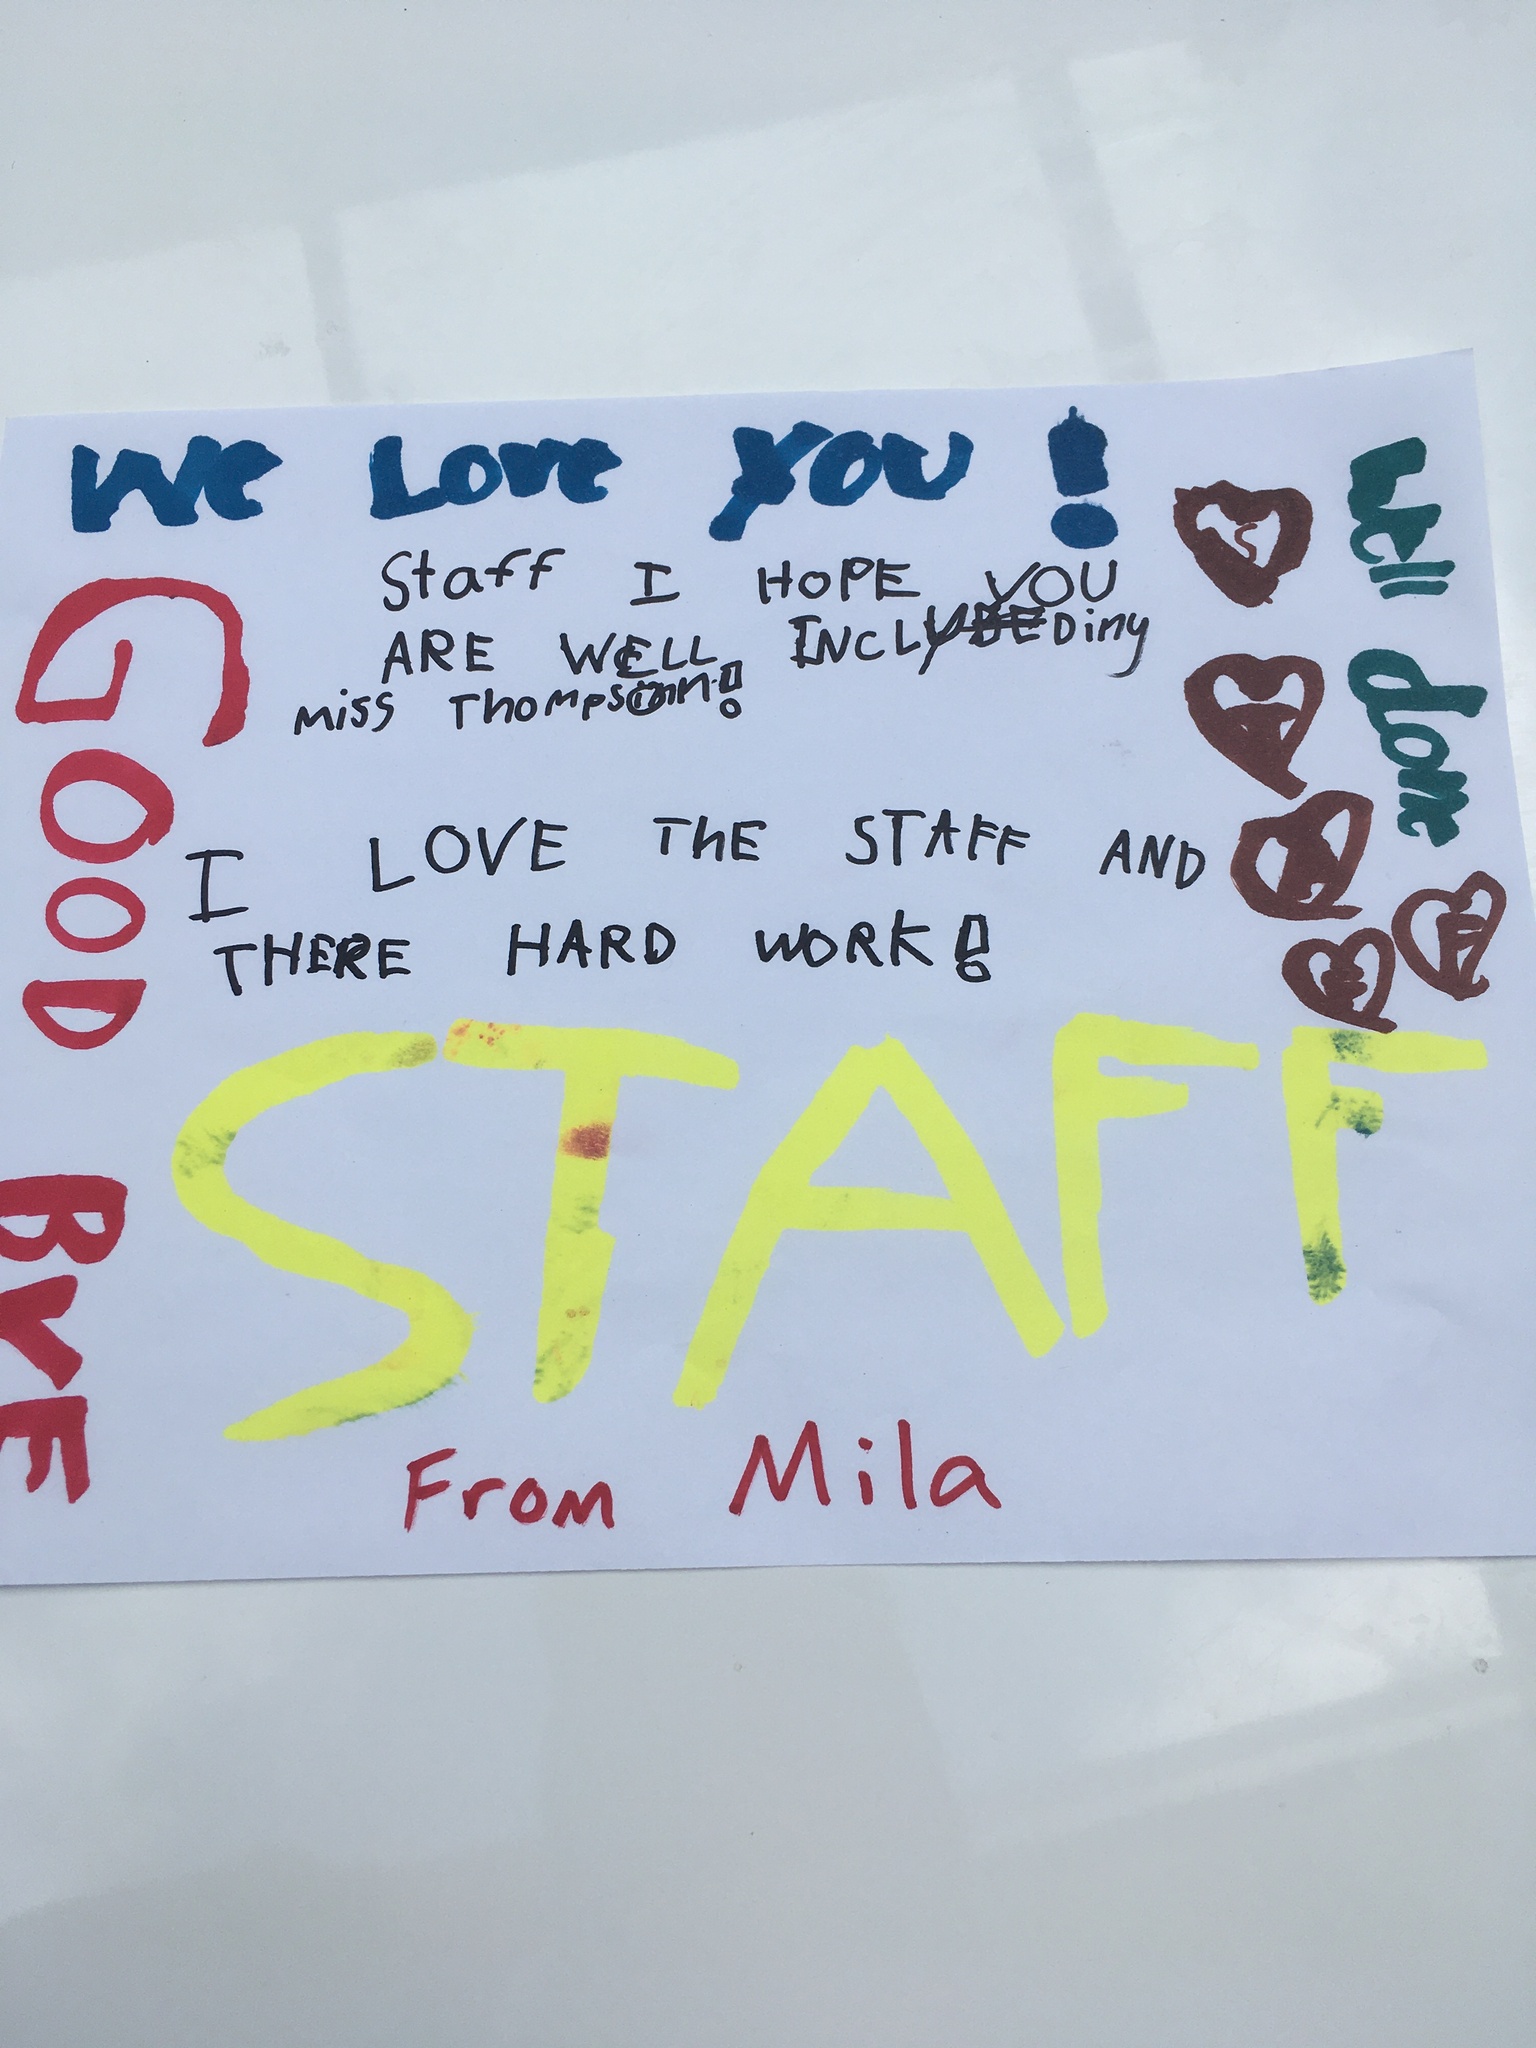 We Love you!
Staff I HOPE YOU
ARE WELL INCLUDiny
Miss Thompson!
I LOVE THE STAFF AND
THERE HARD WORK!
STAFF
From Mila
GOOD BYE
Well done